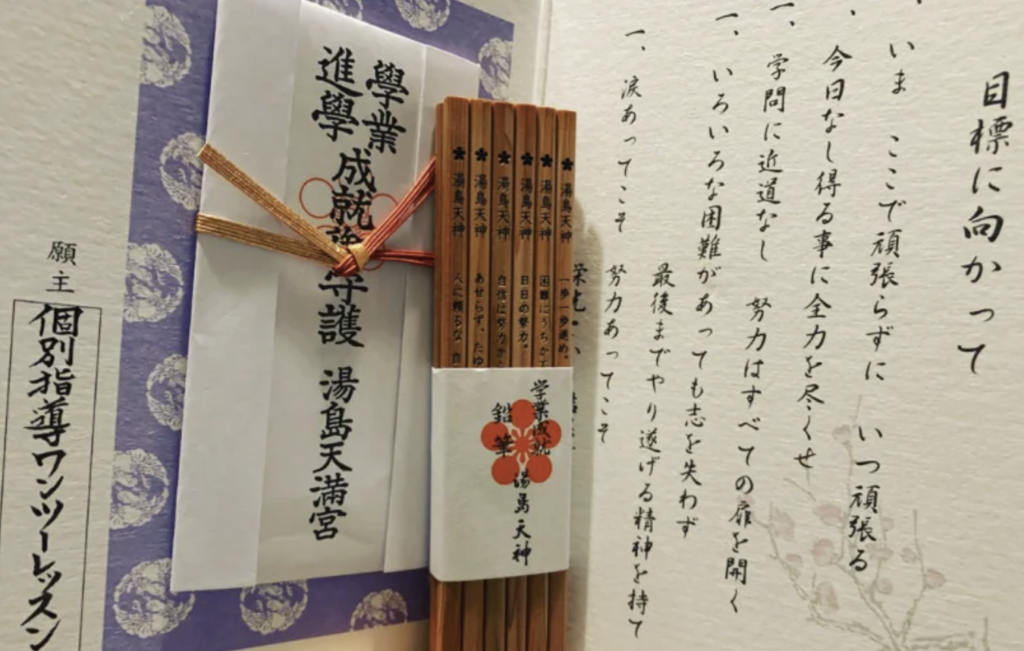 目標に向かって
、いま ここで頑張らずに いつ頑張る
、今日なし得る事に全力を尽くせ
一、学問に近道なし 努力はすべての扉を開く
一、いろいろな困難があっても志を失わず
最後までやり遂げる精神を持て
一、涙あってこそ 努力あってこそ
栄光
湯島天神 一歩一歩進め。
湯島天神 困難にうちか
湯島天神 日日の努力。
湯島天神 自信は努力から
湯島天神 あせらず、たゆ
湯島天神 人に頼るな 自
学業成就
鉛筆
湯島天神
學業
進學
成就 守護 湯島天満宮
願主
個別指導ワンツーレッスン